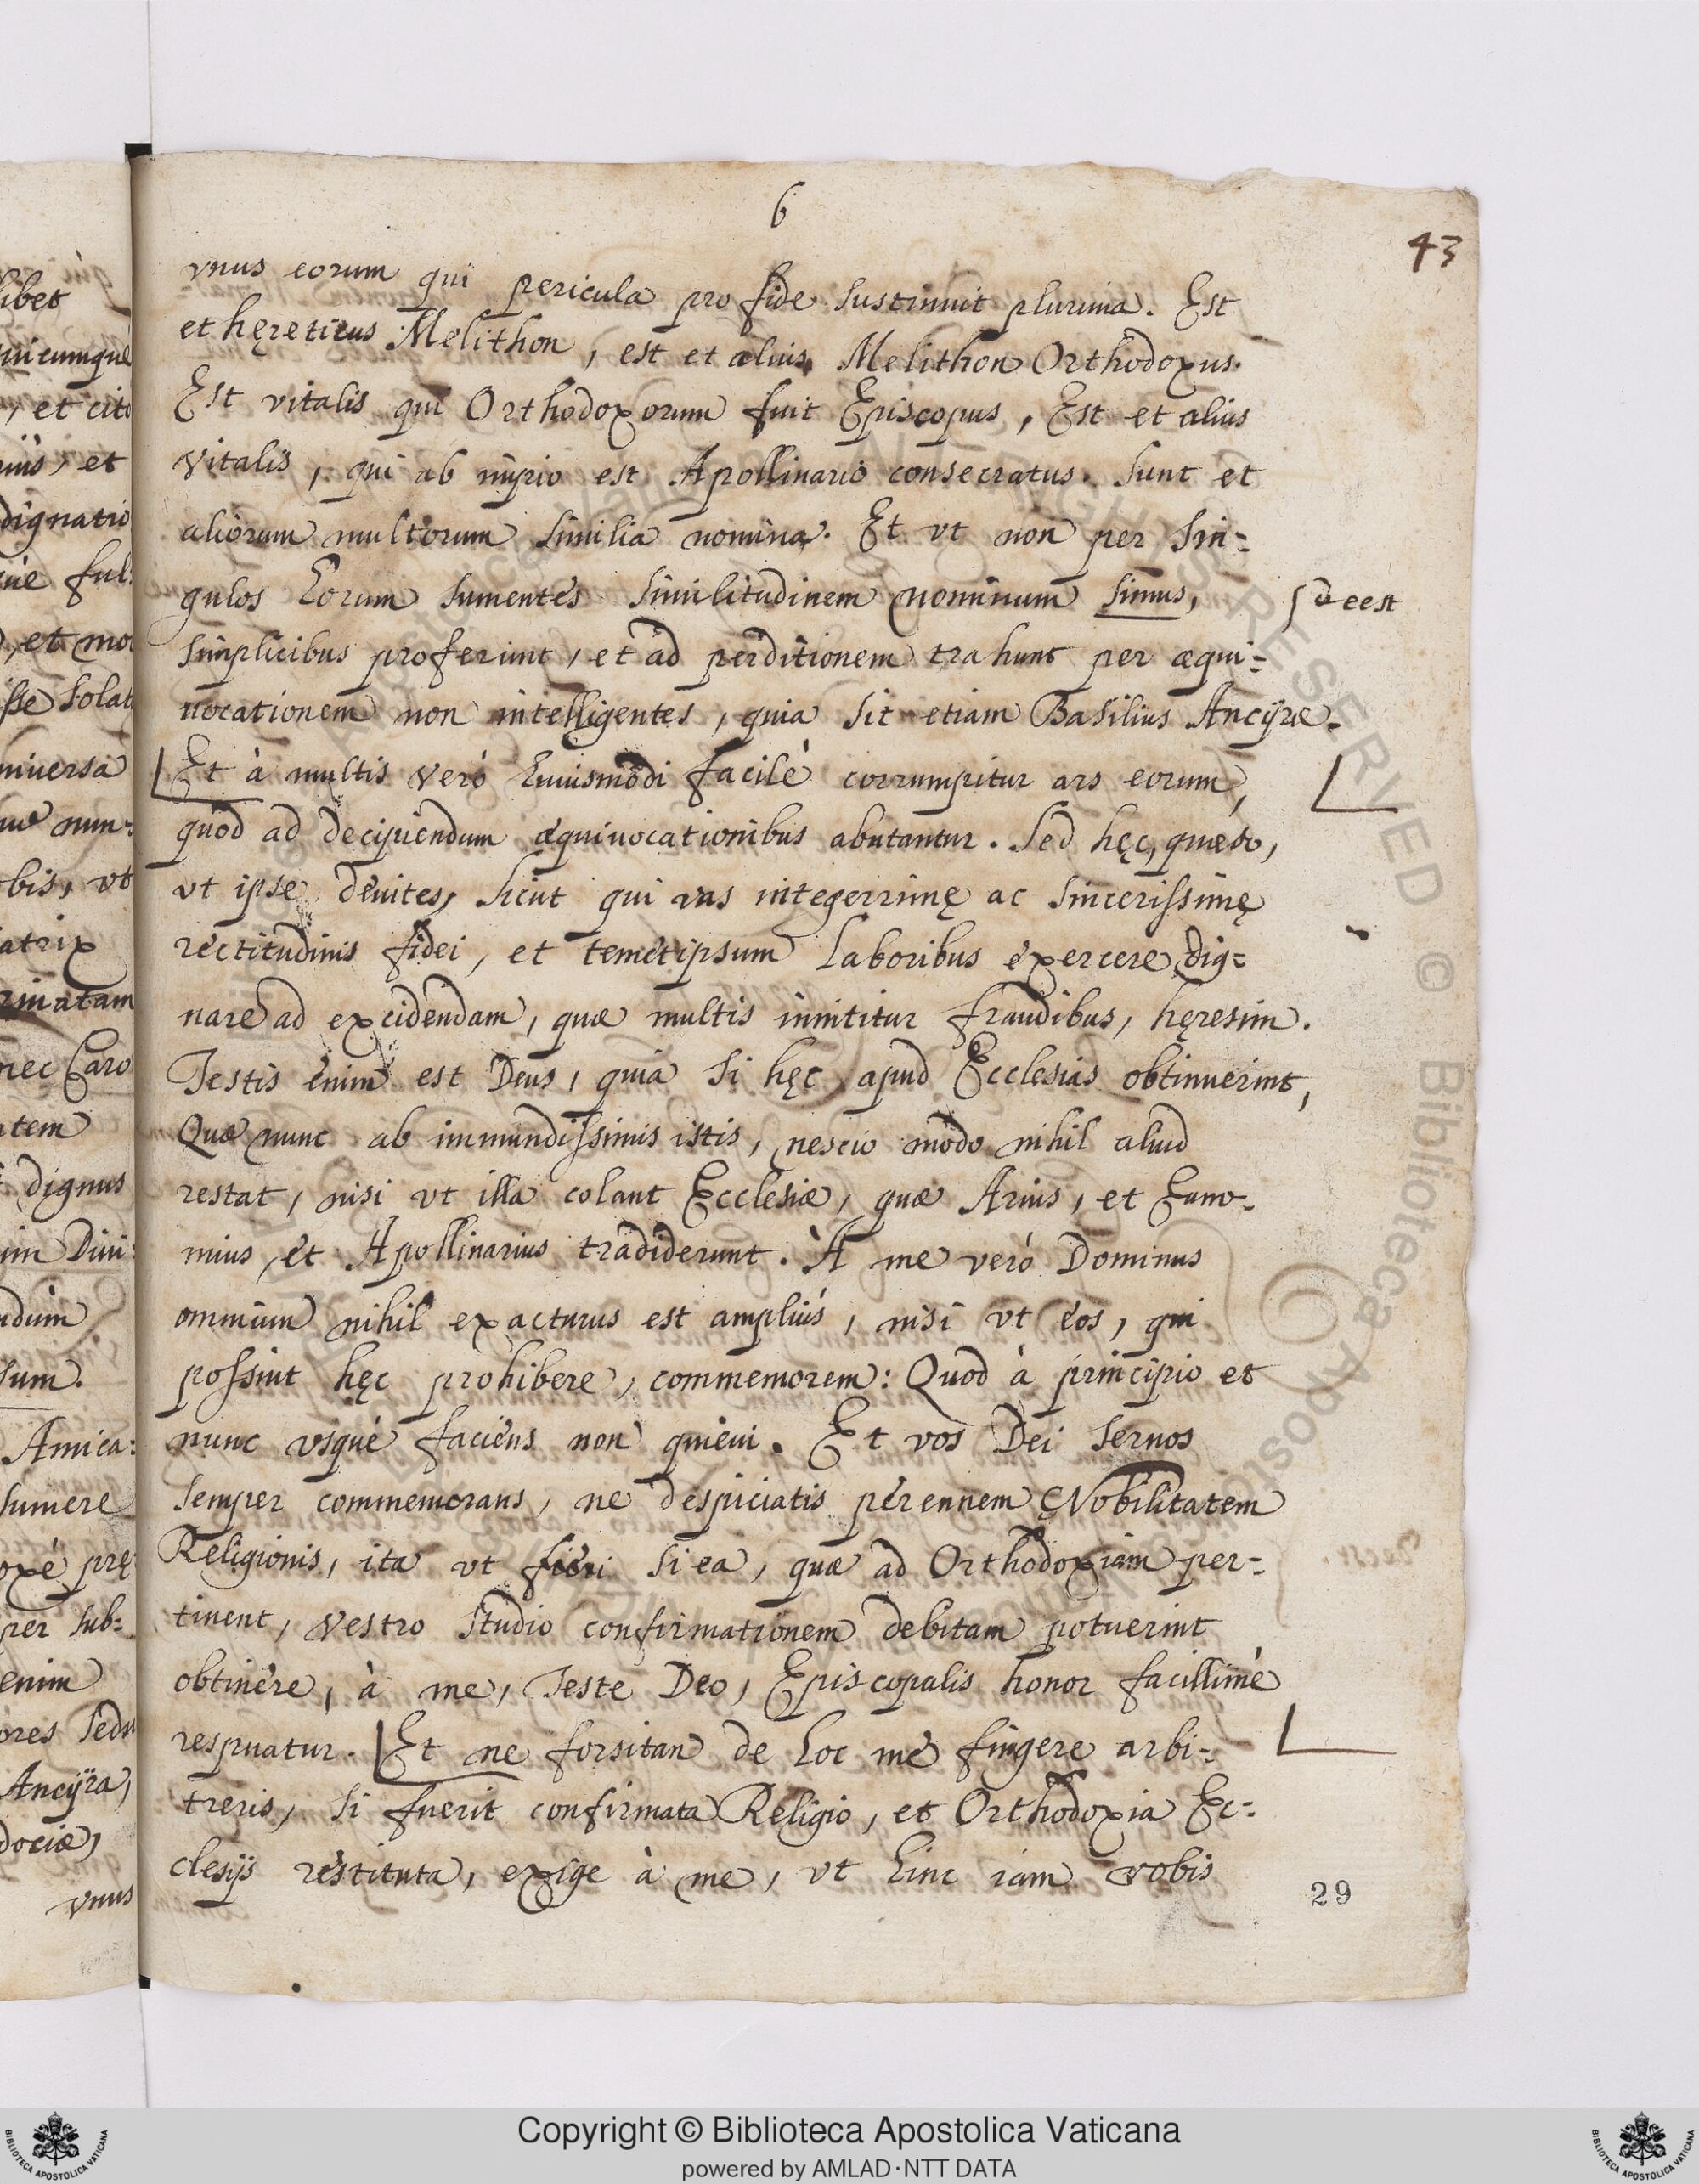 6
43
vnus eorum qui pericula pro fide sustinuit plurima. Est
et hęreticus Melithon, est et alius Melithon Orthodoxus.
Est vitalis qui Orthodoxorum fuit Episcopus, Est et alius
vitalis, qui ab impio est Apollinario consecratus. Sunt et
aliorum multorum similia nomina. Et vt non per sin=
gulos Eorum sumentes similitudinem nominum simus,
deest
simplicibus proferunt, et ad perditionem trahunt per æqui=
uocationem non intelligentes, quia sit etiam Basilius Ancÿræ.
Et à multis verò huiusmodi facilè corrumpitur ars eorum,
quod ad decipiendum æquiuocationibus abutantur. Sed hęc, quæso,
vt ipse deuites, sicut qui vas integerrimę ac sincerissimę
rectitudinis fidei, et temetipsum laboribus exercere dig=
nare ad excidendam, quæ multis innititur fraudibus, hęresim.
Testis enim est Deus, quia si hęc apud Ecclesias obtinuerint,
Quæ nunc ab immundissimis istis, nescio modo nihil aliud
restat, nisi vt illa colant Ecclesiæ, quæ Arius, et Euno-
mius, et Apollinarius tradiderunt. À me verò Dominus
omnium nihil exacturus est ampliùs, nisi vt eos, qui
possint hęc prohibere, commemorem: Quod à principio et
nunc vsquè faciens non quieui. Et vos Dei seruos
semper commemorans, ne despiciatis perennem Nobilitatem
Religionis, ita vt fieri si ea, quæ ad Orthodoxiam per=
tinent, vestro studio confirmationem debitam potuerint
obtinère, à me, Teste Deo, Episcopalis honor facillimè
respuatur. Et ne forsitan de hoc me fingere arbi=
treris, si fuerit confirmata Religio, et Orthodoxia Ec=
clesijs restituta, exige à me, vt hinc iam vobis
29
libet
uicumquè
, et cit
niùs, et
dignatio
uè ful
, et mo
sse solat
niuersa
nun=
bis, vt
atrix
rmatam
nec Caro
tem
dignus
im Diui=
dùm
sum.
Amica=
sumere
oxè pręs
per sub=
enim
ores sedu
Ancÿra,
dociæ,
vnus
Copyright © Biblioteca Apostolica Vaticana
powered by AMLAD·NTT DATA